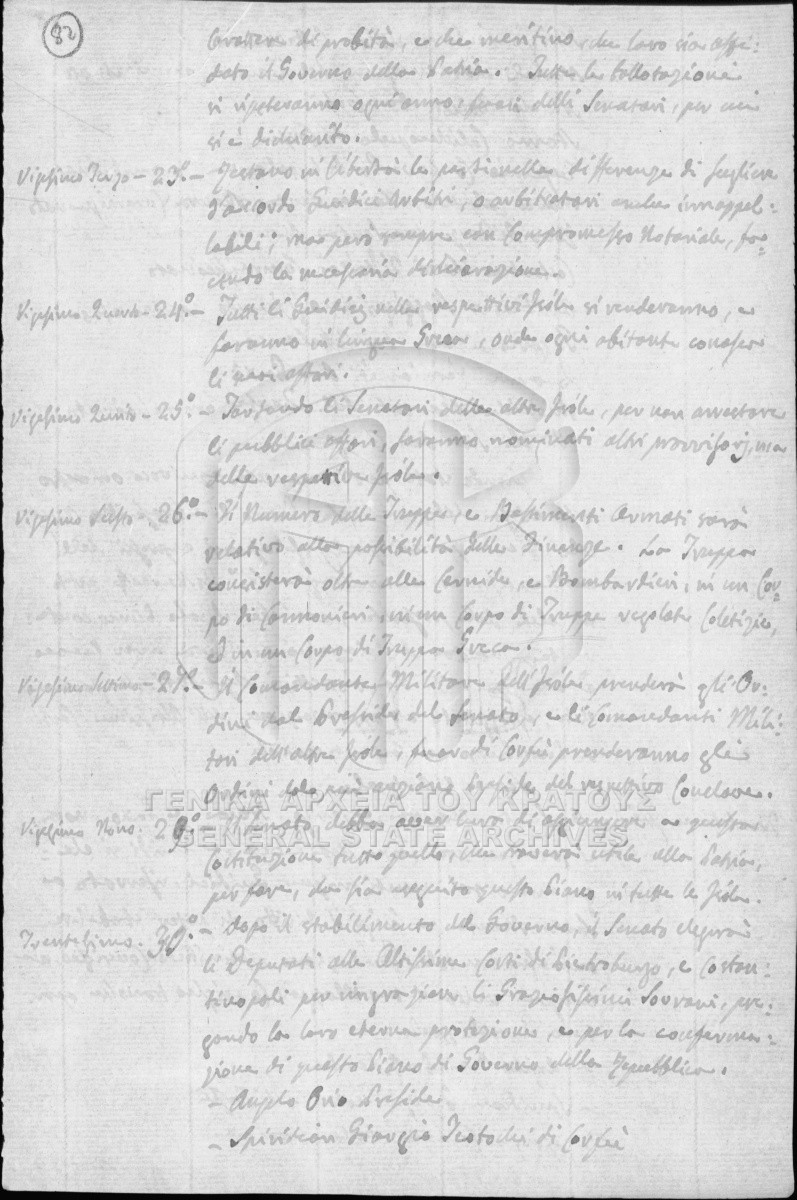 82
carattere di probità, e che meritino, che loro sia affi-
dato il Governo della Patria. Tutte le ballotazioni
si ripeteranno ogni anno, fuori delli Senatori, per cui
si è dichiarito.
Vigesimo Terzo - 23.º - Restano in libertà le parti nelle differenze di scegliere
d'accordo Giudici Arbitri, o arbitratori anche inappel-
labili; ma però sempre con Compromesso Notariale, fa-
cendo la necessaria dichiarazione.
Vigesimo Quarto - 24.º - Tutti li Giudizj nelle respettivi Isole si renderanno, e
saranno in lingua Greca, onde ogni abitante conosca
li suoi affari.
Vigesimo Quinto - 25.º - Tardando li Senatori delle altre Isole, per non arrestare
li pubblici affari, saranno nominati altri provvisorj, ma
delle respettive Isole.
Vigesimo Sesto - 26.º - Il Numero delle Truppe, e Bastimenti Armati sarà
relativo alla possibilità delle Finanze. La Truppa
consisterà oltre alle Cernide, e Bombardieri, in un Cor-
po di Cannonieri, in un Corpo di Truppe regolate
ed in un Corpo di Truppa Greca.
Vigesimo Settimo - 27.º - Il Comandante Militare dell'Isole prenderà gli Or-
dini dal Preside del Senato, e li Comandanti Mili-
tari dell'altre Isole, fuor di Corfù prenderanno gli
Ordini dal Preside del respettivo Conclave.
Vigesimo Nono. 29.º - Il Senato debba aver cura di aggiungere a questa
Costituzione tutto quello, che troverà utile alla Patria,
per fare, che sia eseguito questo Piano in tutte le Isole.
Trentesimo. 30.º - Dopo il stabilimento del Governo, il Senato eleggerà
li Deputati alle Altissime Corti di Pietroburgo, e Costan-
tinopoli per ringraziare li Graziosissimi Sovrani, pre-
gando la loro eterna protezione, e per la conferma-
zione di questo Piano di Governo della Repubblica.
- Angelo Orio Preside
- Spiridion Giorgio Teotochi di Corfù
ΓΕΝΙΚΑ ΑΡΧΕΙΑ ΤΟΥ ΚΡΑΤΟΥΣ
GENERAL STATE ARCHIVES